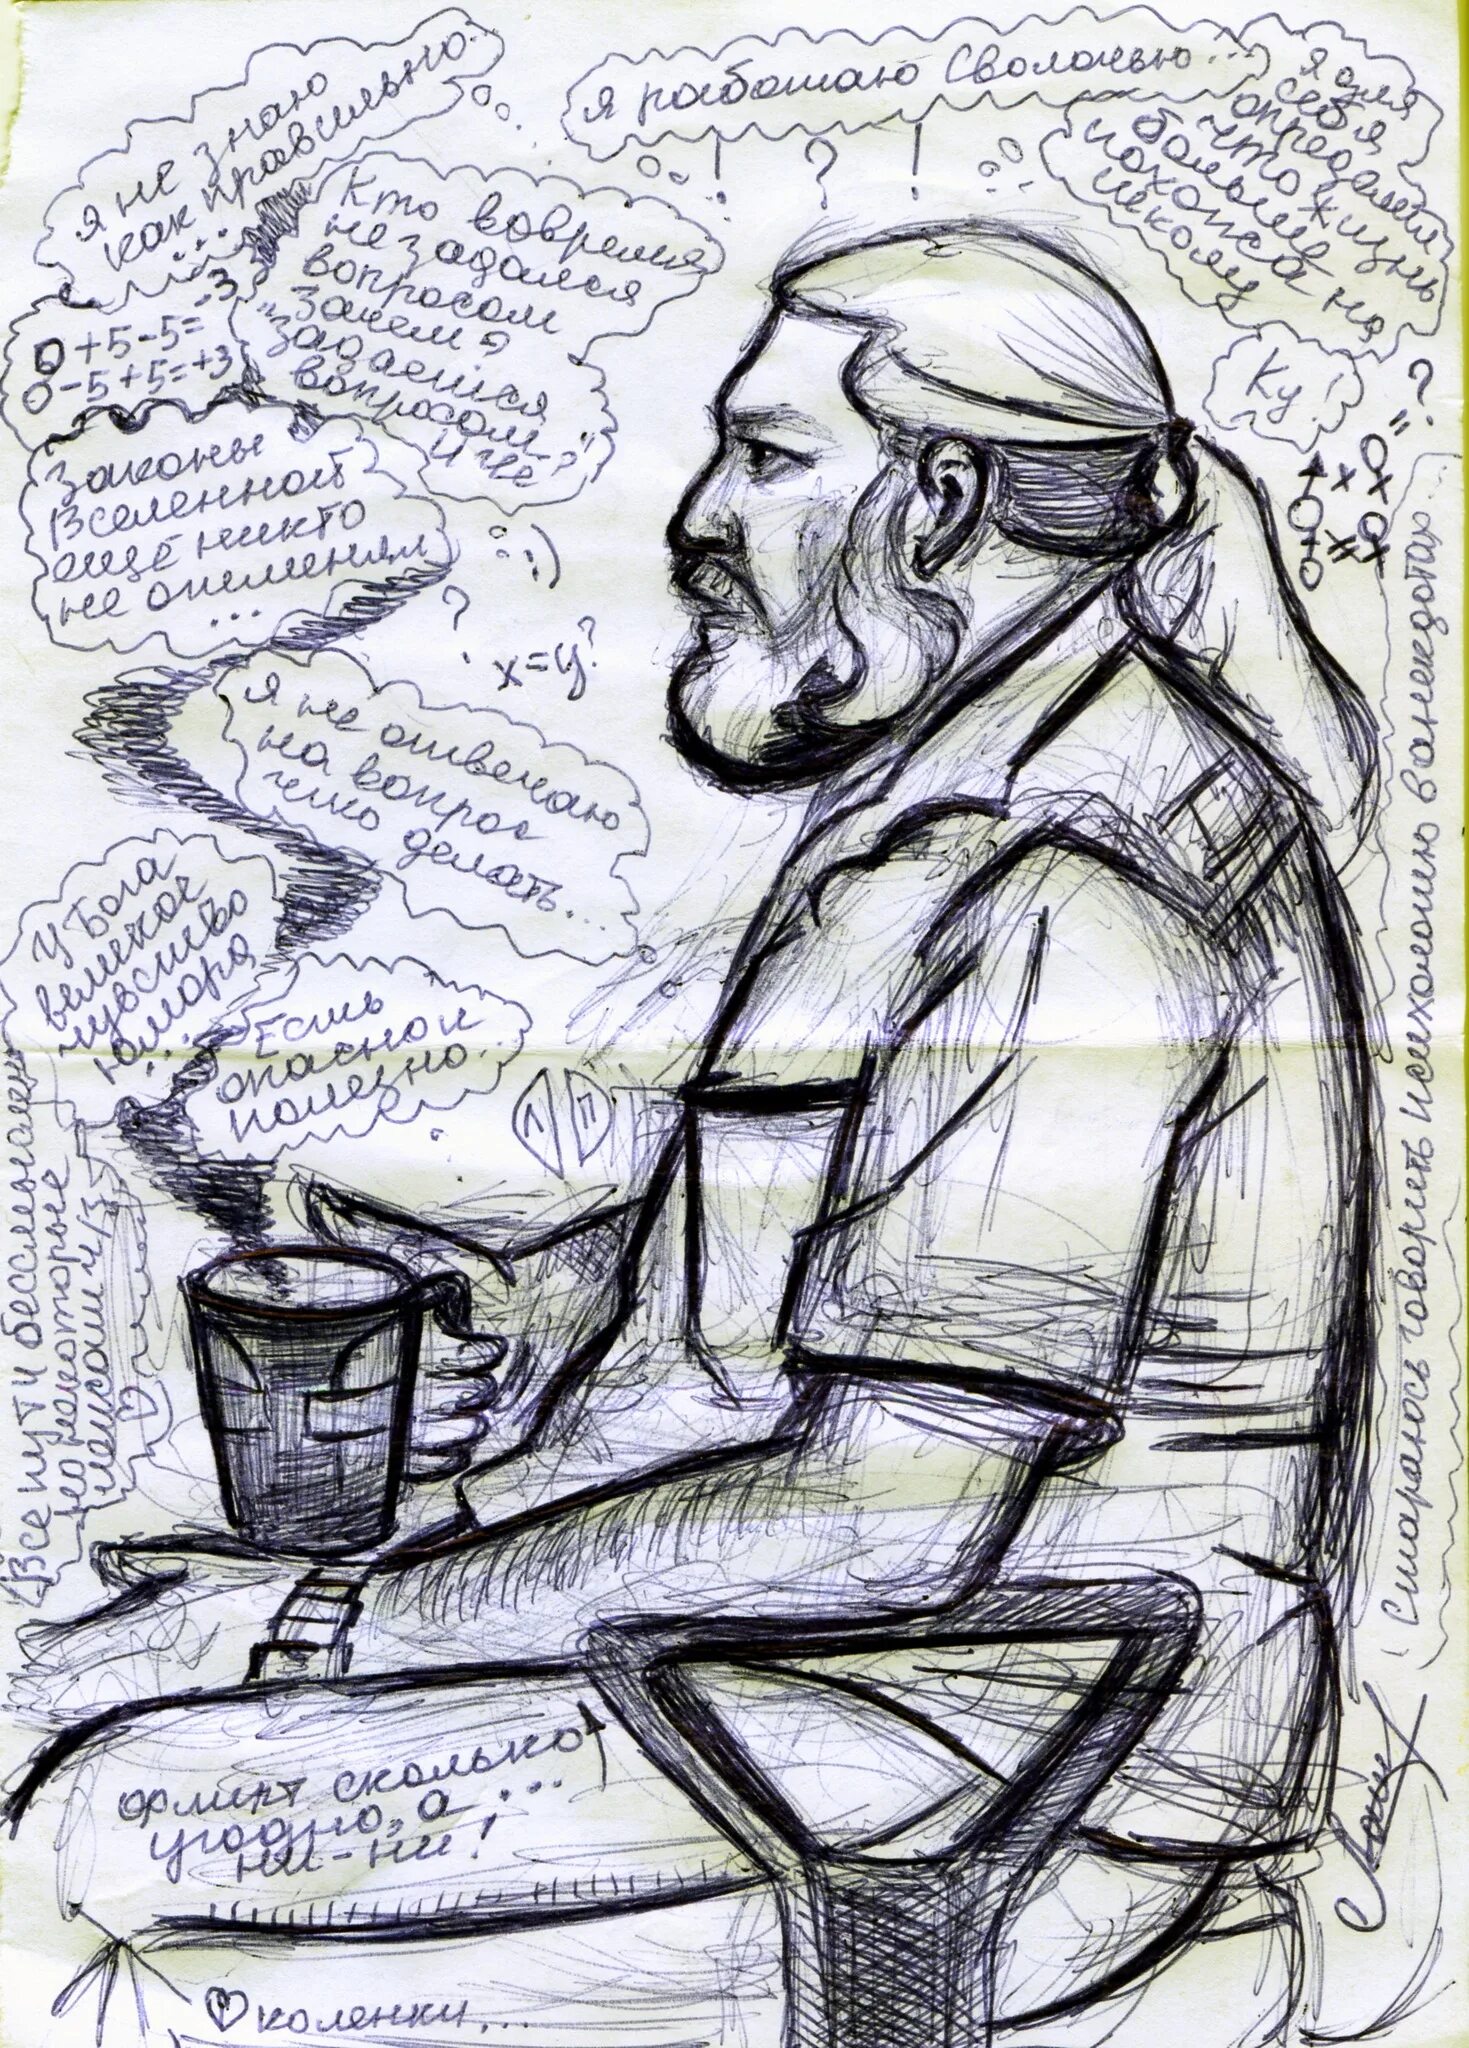 я не знаю
как правильно...
я работаю Сволочью...
! ? !
я для
себя
определил
что жизнь
больше
похожа на
школу
Ку!
?
Кто вовремя
не задался
вопросом
"Зачем?
задаётся
вопросом
И чё?"
0+5-5=-3
0-5+5=+3
Законы
Вселенной
ещё никто
не отменял
...
:)
?
x=y?
я не отвечаю
на вопрос
что делать...
У Бога
великое
чувство
юмора
...
Есть
опасно и
полезно...
Л П
Все пути бессмысленны
но некоторые
Стараюсь говорить исключительно в анекдотах...
Флирт сколько
угодно, а...
ни-ни!
коленки...